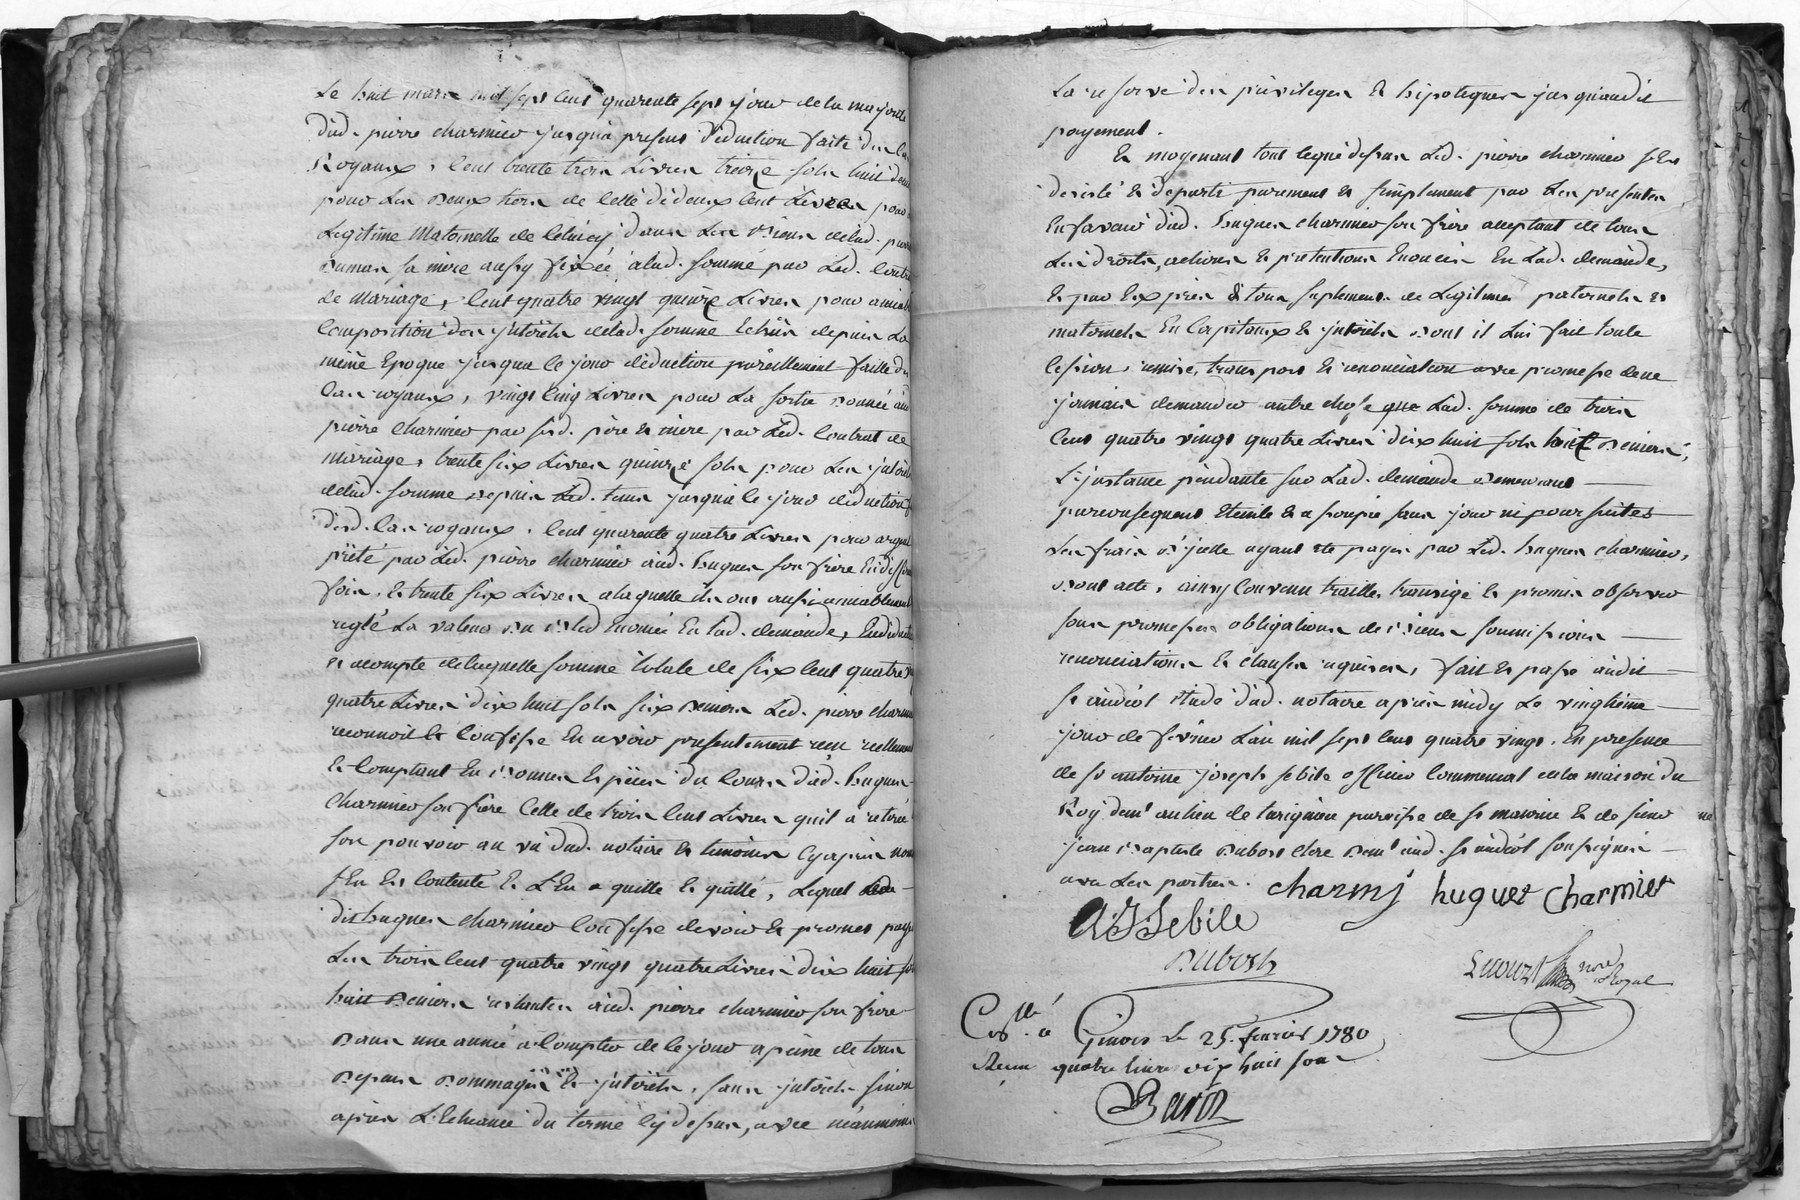 Le huit mars mil sept cens quarente sept jour de la majorité
dud. pierre charmier jusqu'a present deduction faite des cas
Royaux, cent trente trois Livres treize sols huit deniers
pour Les deux tiers de celle de deux cent Livres pour
Legitime Maternelle de celuicy, dans Les Biens delad.
Dumas sa mere aussy fixée alad. somme par Led. contrat
de Mariage, cent quatre vingt quinze Livres pour amiable
Composition des jnterets delad. somme Echus depuis La
même Epoque jusqua ce jour deduction pareillement faitte des
Cas royaux, vingt cinq Livres pour La sortie donnée aud.
pierre charmier par sesd. pere et mere par Led. Contrat de
Mariage, trente six Livres quinze sols pour Les jnterets
delad. somme depuis Led. tems jusqua ce jour deduction
desd. Cas royaux, cent quarente quatre Livres pour argent
prêté par Led. pierre charmier aud. hugues son frère En diff
fois, Et trente six Livres alaquelle ils ont aussi amiablement
reglé La valeur du Bled Enoncé En Lad. demande, En deduction
et acompte delaquelle somme totale de six cent quatre vingt
quatre Livres dix huit sols six deniers Led. pierre charmier
reconnoit Et Confesse En avoir presentement reçu reellement
Et Comptant En bonnes Espèces du Cours dud. hugues
Charmier son frère Celle de trois cens Livres quil a retiré
son pouvoir au vu dud. notaire et temoins cy après nommés
sEn Est Contenté Et L'En a quitté et quitte, Lequel Led.
dit hugues charmier Confesse devoir et promet payer
Les trois cens quatre vings quatre Livres dix huit sols
huit deniers restantes aud. pierre charmier son frère
Dans une année a Compter de ce jour a peine de tous
Depens Dommages Et jnterets, sans jnterets sinon
après L'Echeance du terme cy dessus, avec neanmoins
La reserve des privileges Et hipoteques jusquaudit
payement.
Et moyenant tout cequedessus Led. pierre charmier s'Est
desisté et departi purement et simplement par Les presentes
En faveur dud. hugues charmier son frère acceptant de tous
Les droits, actions et pretentions Enoncés En Lad. demande,
Et par Exprès de tous suplemens de Legitimes paternels et
maternels En Capitaux Et jnterets dont il Lui fait toute
Cession, remise, transport Et renonciation avec promesse dene
jamais demander autre chose que Lad. somme de trois
Cens quatre vings quatre Livres dix huit sols huit deniers,
L'jnstance pendante sur Lad. demande demeurant
parconsequent Eteinte Et assoupie sans jour ni poursuites
Les frais d'jcelle ayant été payés par Led. hugues charmier,
dont acte, ainsy Convenu traitté, transigé et promis observer
sous promesses obligations de Biens soumissions
renonciations Et clauses requises, fait et passé audit
st andéol Etude dud. notaire après midy Le vingtième
jour de fevrier L'an mil sept cens quatre vings, En presence
de sr antoine joseph sebile officier Commensal en la maison du
Roy demt au lieu de tarignieu paroisse de st maurice Et de sieur
jean Baptiste Dubost clerc demt aud. st andéol soussignés
avec Les parties. Charmj hugues Charmier
AJSebile
Dubost
nore Royal
Conllé a Givors Le 25 fevrier 1780
Reçu quatre livre dix huit sous
Barot